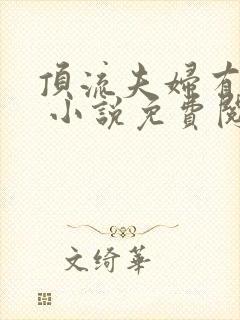 頂流夫婦有
小說免費閱
文綺華